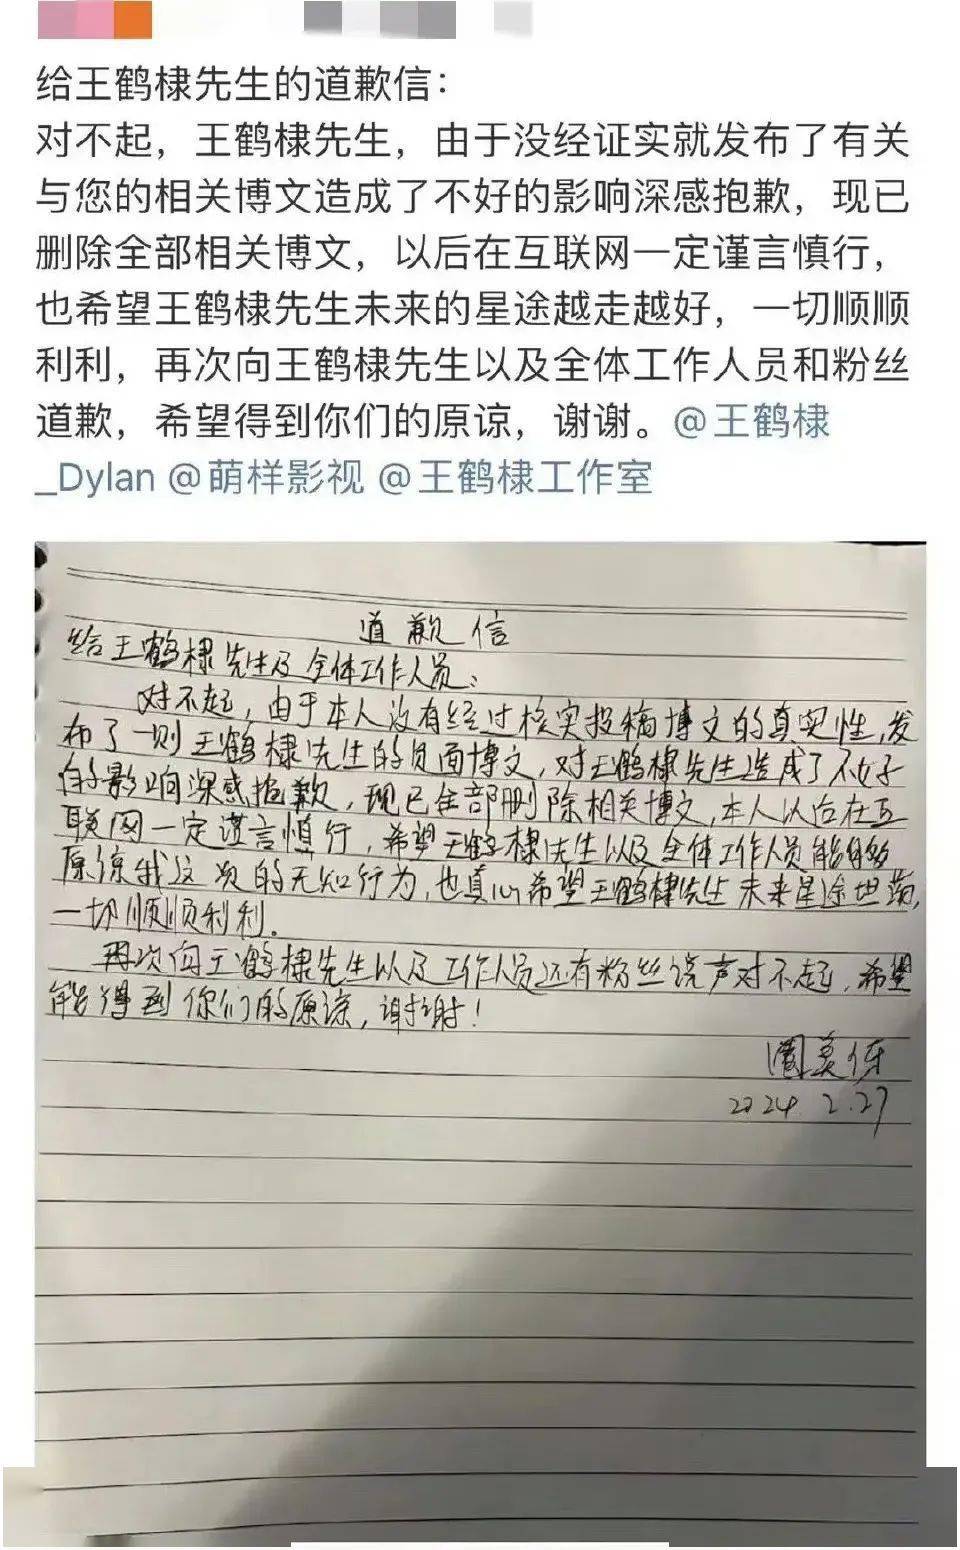 给王鹤棣先生的道歉信：
对不起，王鹤棣先生，由于没经证实就发布了有关
与您的相关博文造成了不好的影响深感抱歉，现已
删除全部相关博文，以后在互联网一定谨言慎行，
也希望王鹤棣先生未来的星途越走越好，一切顺顺
利利，再次向王鹤棣先生以及全体工作人员和粉丝
道歉，希望得到你们的原谅，谢谢。@王鹤棣
_Dylan @萌样影视 @王鹤棣工作室
道歉信
给王鹤棣先生及全体工作人员：
对不起，由于本人没有经过核实投稿博文的真实性，发
布了一则王鹤棣先生的负面博文，对王鹤棣先生造成了不好
的影响深感抱歉，现已全部删除相关博文，本人以后在互
联网一定谨言慎行，希望王鹤棣先生以及全体工作人员能够
原谅我这次的无知行为，也真心希望王鹤棣先生未来星途坦荡，
一切顺顺利利。
再次向王鹤棣先生以及工作人员还有粉丝说声对不起，希望
能得到你们的原谅，谢谢！
2024 2.27